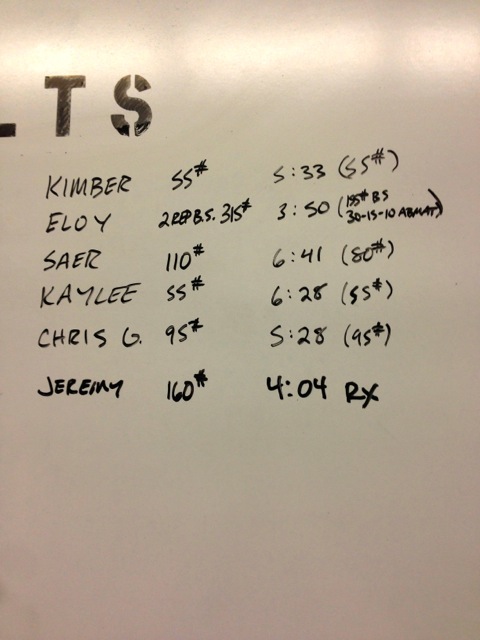 LTS
KIMBER 55# 5:33 (55#)
ELOY 2REP B.S. 315# 3:50 (155# BS
30-15-10 ABMAT)
SAER 110# 6:41 (80#)
KAYLEE 55# 6:28 (55#)
CHRIS G. 95# 5:28 (95#)
JEREMY 160# 4:04 RX